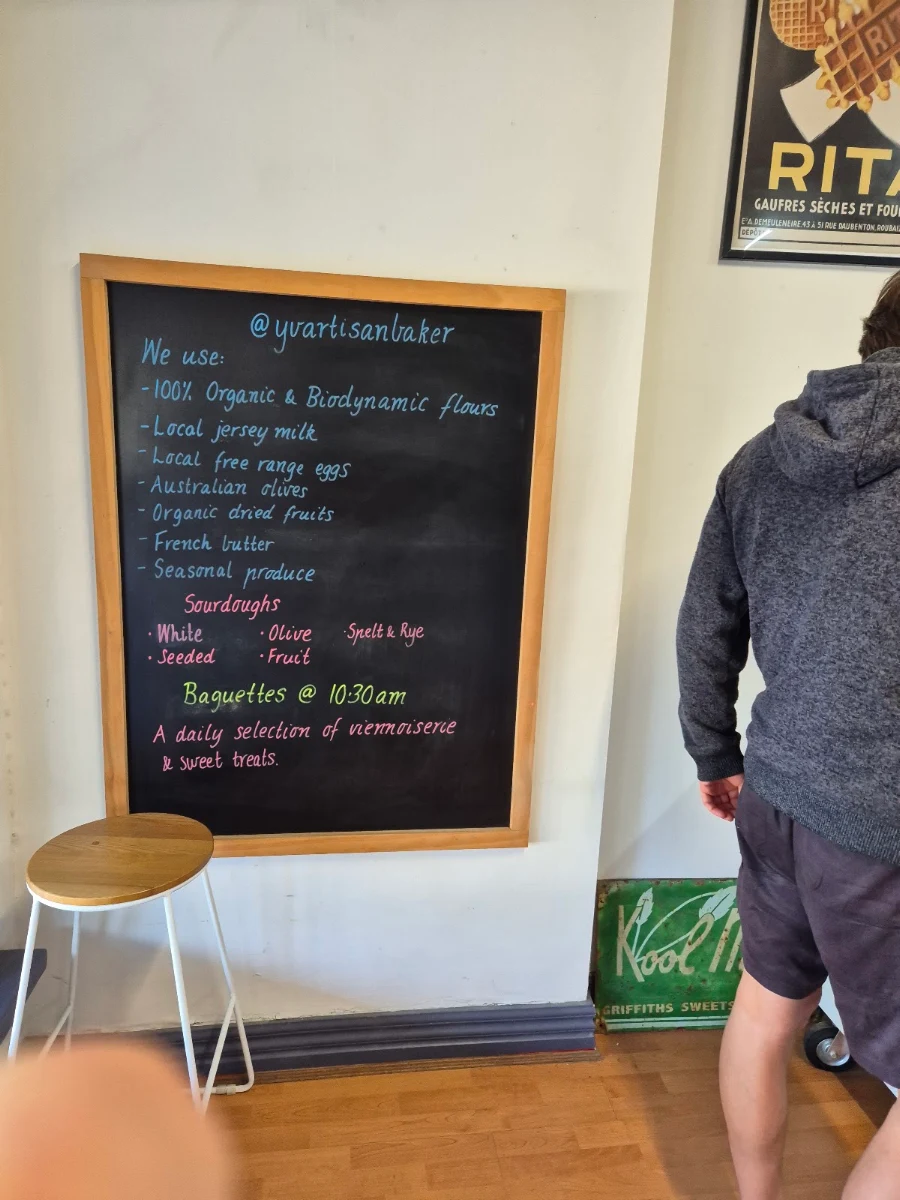 @yvartisanbaker
We use:
-100% Organic & Biodynamic flours
-Local jersey milk
-Local free range eggs
-Australian olives
-Organic dried fruits
-French butter
-Seasonal produce
Sourdoughs
·White ·Olive ·Spelt & Rye
·Seeded ·Fruit
Baguettes @ 10·30am
A daily selection of viennoiserie
& sweet treats.
RITA
GAUFRES SÈCHES ET FOU
ETS. DEMEULENEIRE 43 À 51 RUE DAUBENTON, ROUBAI
DÉPÔT
Kool
GRIFFITHS SWEETS